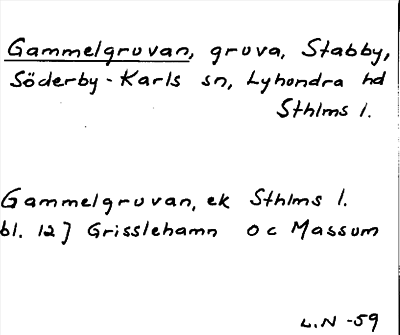 Gammelgruvan, gruva, Stabby,
Söderby-Karls sn, Lyhundra hd
Sthlms l.
Gammelgruvan, ek Sthlms l.
bl. 127 Grisslehamn oc Massum
L.N -59